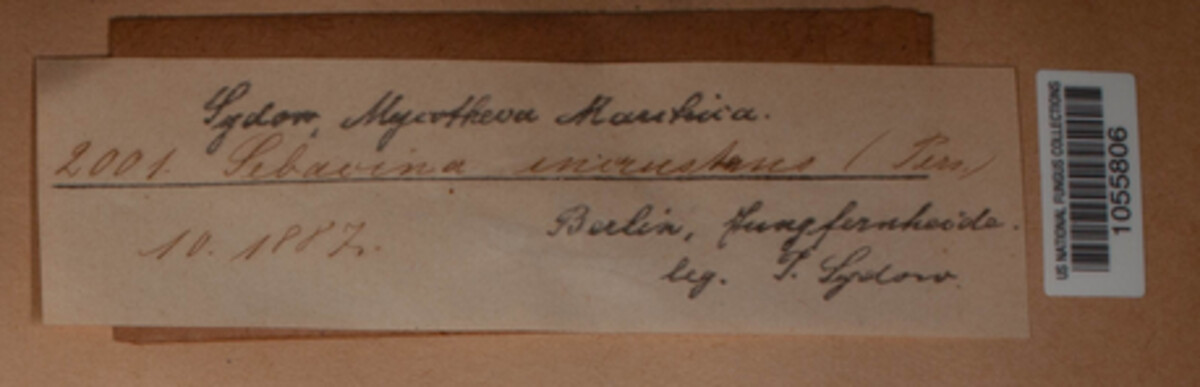 Sydow, Mycotheca Marchica.
2001. Sebacina incrustans (Pers.)
10. 1887.
Berlin, Jungfernheide.
leg. P. Sydow.
US NATIONAL FUNGUS COLLECTIONS
1055806